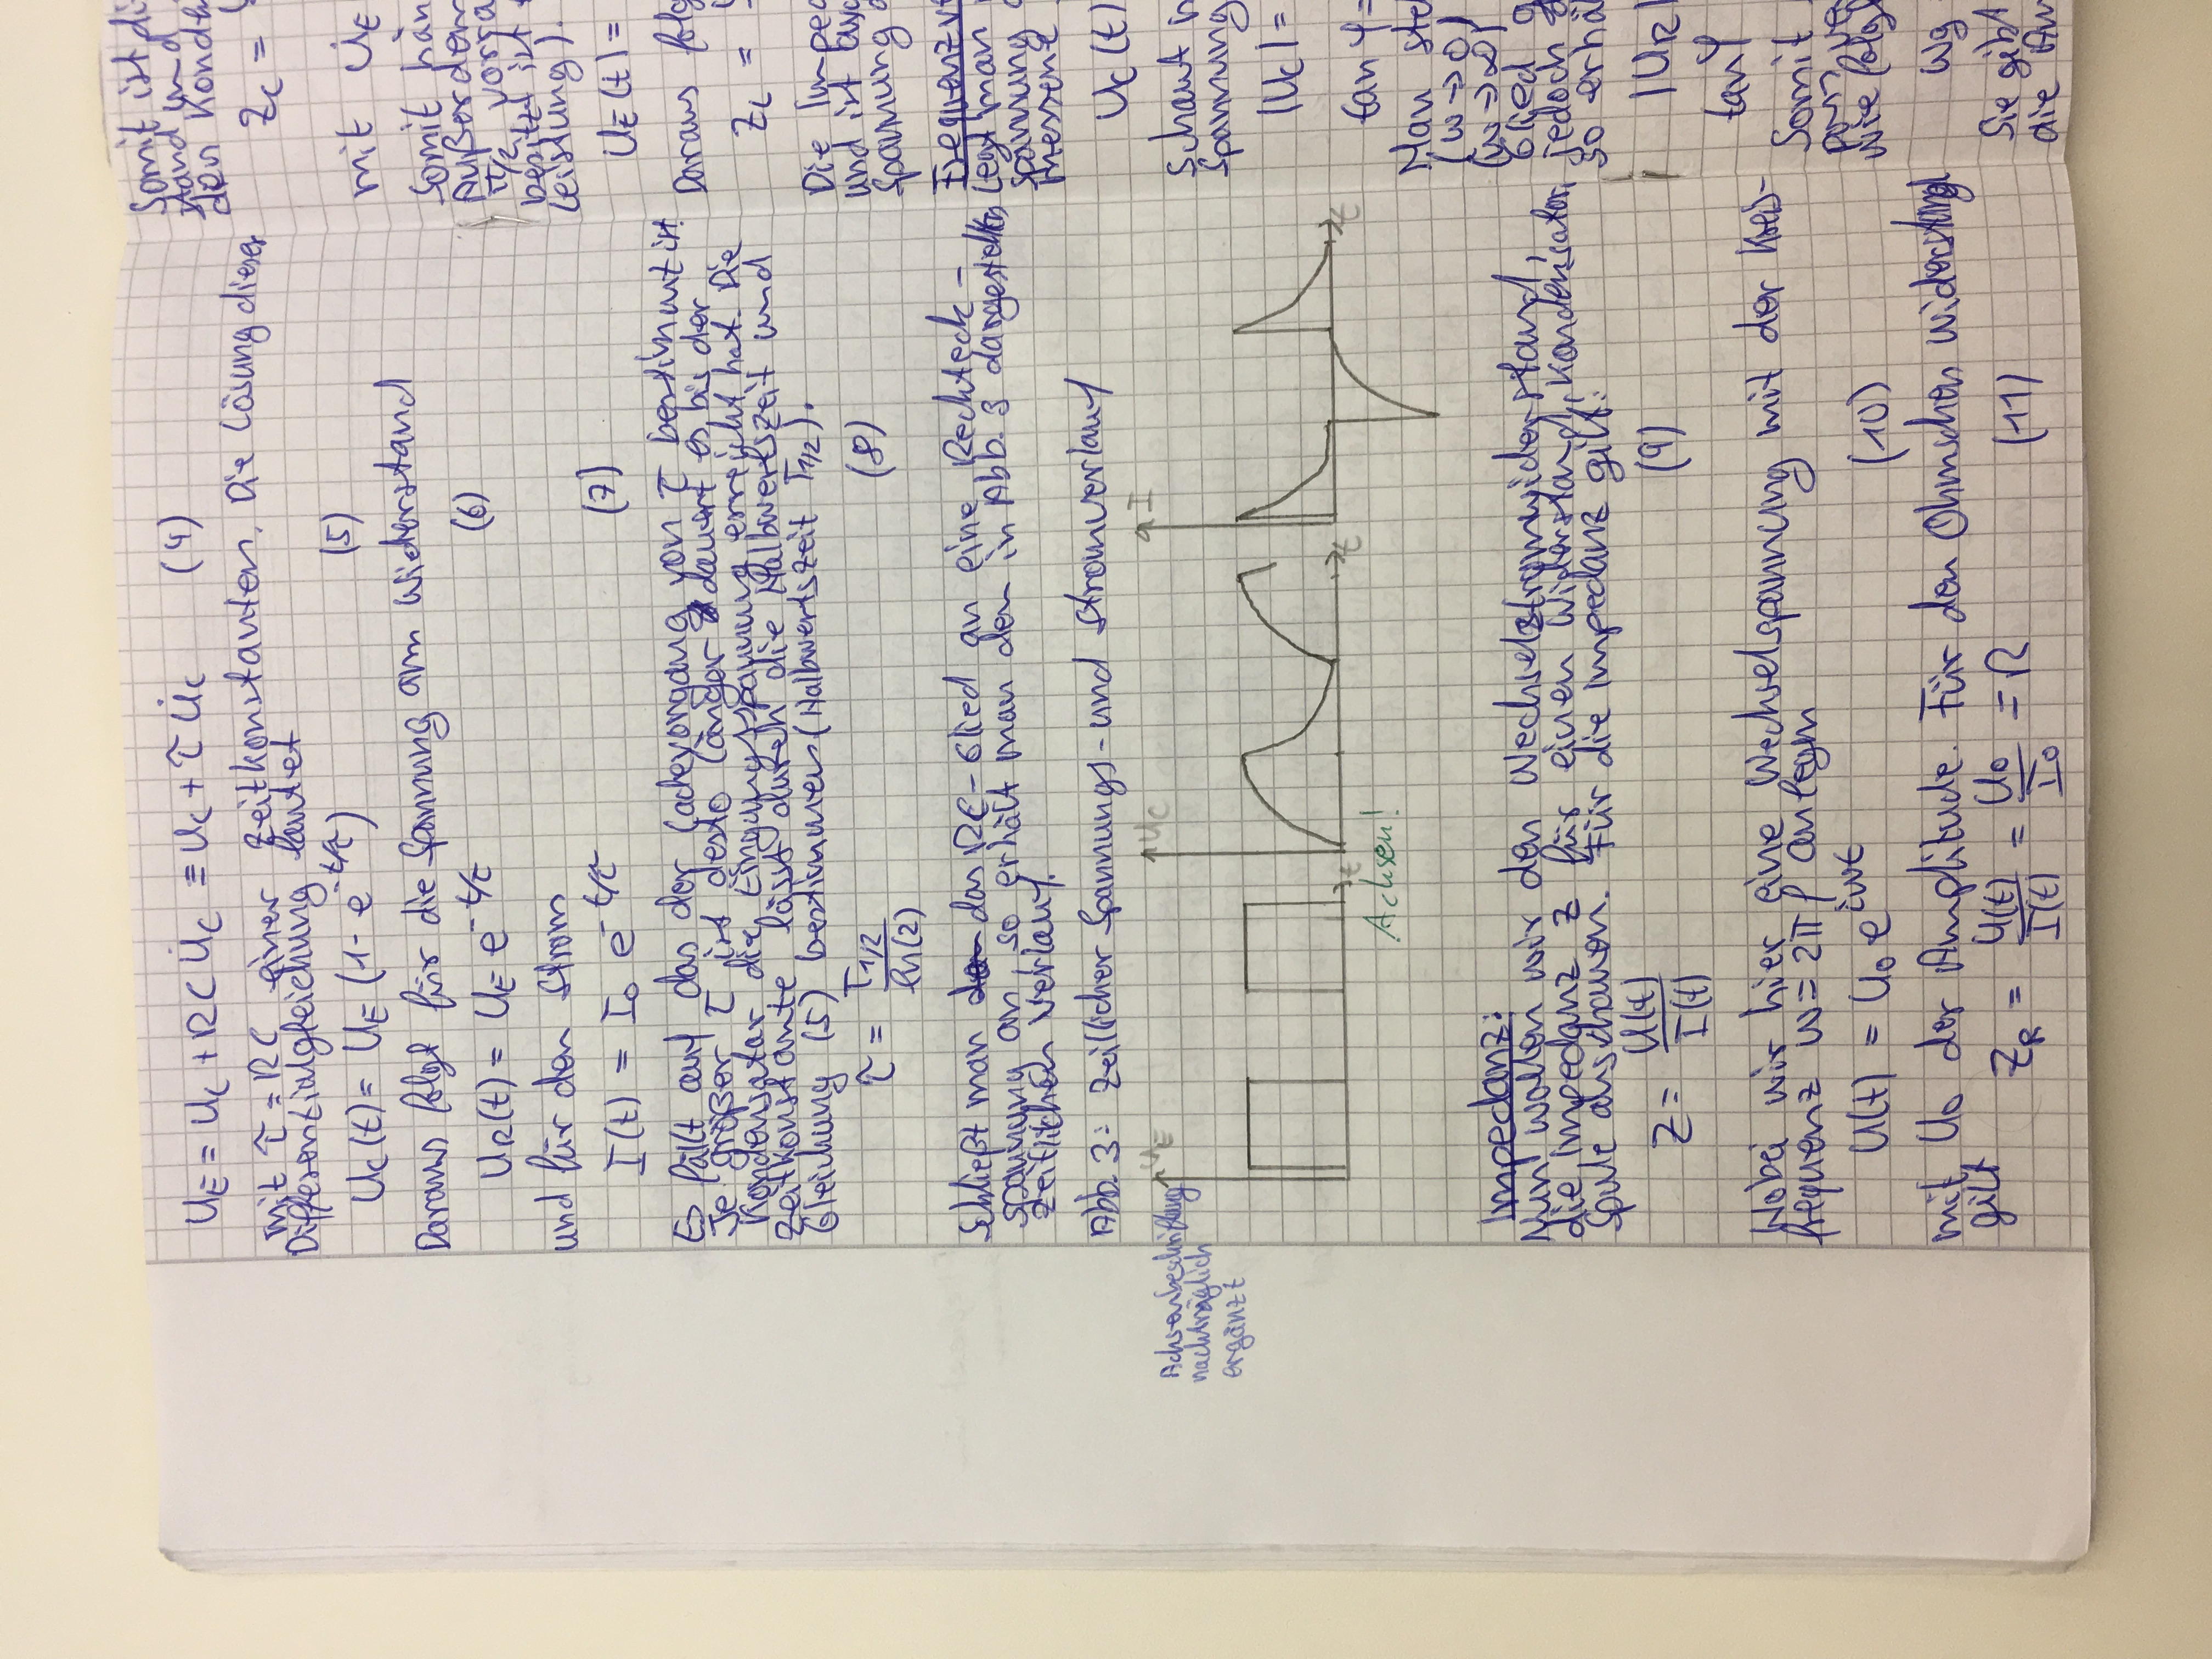 U_E = U_C + RC U̇_C ≡ U_C + τ U̇_C (4)
mit τ = RC einer Zeitkonstanten. Die Lösung dieser
Differentialgleichung lautet
U_C(t) = U_E (1 - e^{-t/τ}) (5)
Daraus folgt für die Spannung am Widerstand
U_R(t) = U_E e^{-t/τ} (6)
und für den Strom
I(t) = I_0 e^{-t/τ} (7)
Es fällt auf das der Ladevorgang von τ bestimmt ist.
Je größer τ ist desto länger dauert es bis der
Kondensator die Eingangsspannung erreicht hat. Die
Zeitkonstante lässt durch die Halbwertszeit und
Gleichung (5) bestimmen (Halbwertszeit T_{1/2}).
τ = T_{1/2} / ln(2) (8)
Schließt man das RC-Glied an eine Rechteck-
spannung an, so erhält man den in Abb. 3 dargestellten
zeitlichen Verlauf.
Abb. 3: Zeitlicher Spannungs- und Stromverlauf
Achsenbeschriftung
nachträglich
ergänzt
U_E
t
U_C
t
I
t
Achsen!
Impedanz:
Nun wollen wir den Wechselstromwiderstand,
die Impedanz Z für einen Widerstand, Kondensator,
Spule anschauen. Für die Impedanz gilt:
Z = U(t) / I(t) (9)
Wobei wir hier eine Wechselspannung mit der Kreis-
frequenz ω = 2πf anlegen
U(t) = U_0 e^{iωt} (10)
mit U_0 der Amplitude. Für den Ohmschen Widerstand
gilt
Z_R = U(t) / I(t) = U_0 / I_0 = R (11)
Somit ist di
stand und
den Konden
Z_C =
mit U̇_E
Somit hän
Außerdem
π/2 vorra
besitzt ist
Leistung).
U_E(t) =
Daraus folg
Z_L =
Die Imped
und ist
Spannung
Frequenzv
Legt man
Spannung
messene
U_C(t)
Schaut
Spannung
|U_C| =
tan φ =
Man ste
(ω → 0)
(ω → ∞)
Glied g
jedoch
so erhä
|U_R|
tan φ
Somit
wie folgt
ωg
Sie gibt
die Am